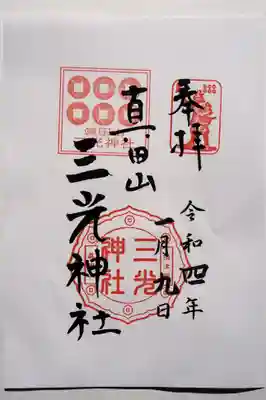 奉拝
令和四年
一月九日
真田山
三光神社
三光
神社